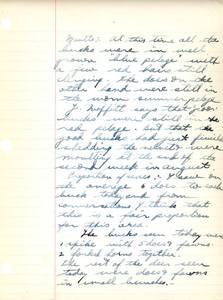 Moults: At this time all the
bucks were in well
grown "blue pelage" with
a few red hairs still
clinging. The does on the
other hand were still in
the worn summer pelage.
J. Moffitt says that
bucks were still in the
red pelage. And that the
good buck had
shedding the velvet were
moulting it at end of the
second week in August.
Proportion of sexes: I saw on
the average 2 does to each
buck today and from
conversations I think that
this is a fair proportion
for this area.
The bucks seen today were
1 spike with 2 does & fawns
2 forked horns together.
The rest of the deer seen
today were does & fawns
in small bunches.